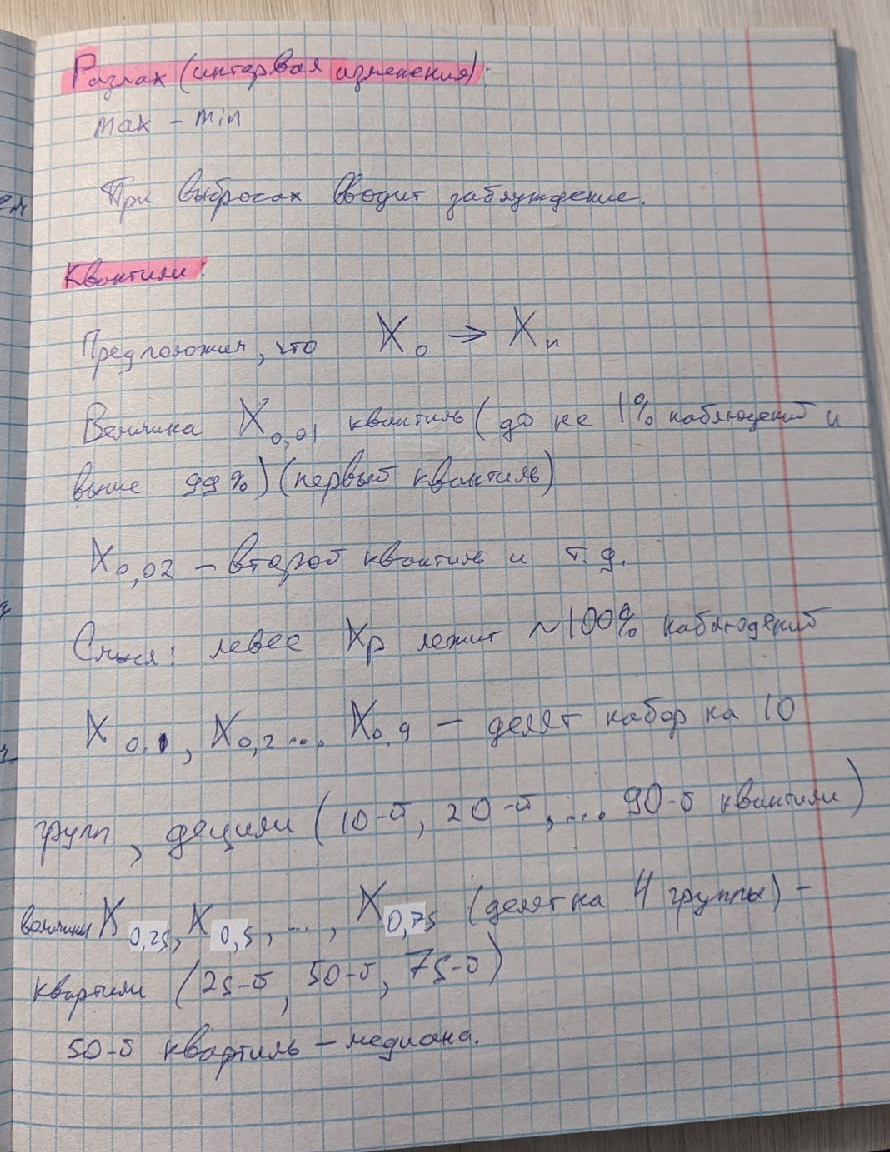 Размах (интервал изменения):
max - min
При выбросах вводит заблуждение.
Квантили:
Предположим, что X₀ → Xₙ
Величина X₀,₀₁ квантиль (до не 1% наблюдений и
выше 99%) (первый квантиль)
X₀,₀₂ - второй квантиль и т.д.
Смысл: левее Xp лежит ~100% наблюдений
X₀.₁, X₀,₂ ... X₀.₉ - делят набор на 10
групп, децили (10-й, 20-й, ... 90-й квантили)
величины X₀,₂₅, X₀,₅, ..., X₀,₇₅ (делят на 4 группы) -
квартили (25-й, 50-й, 75-й)
50-й квартиль - медиана.